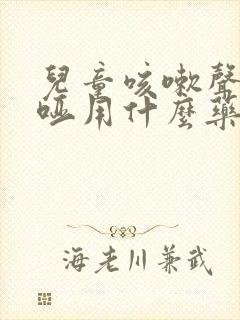 兒童咳嗽聲
啞用什麼藥
海老川兼武